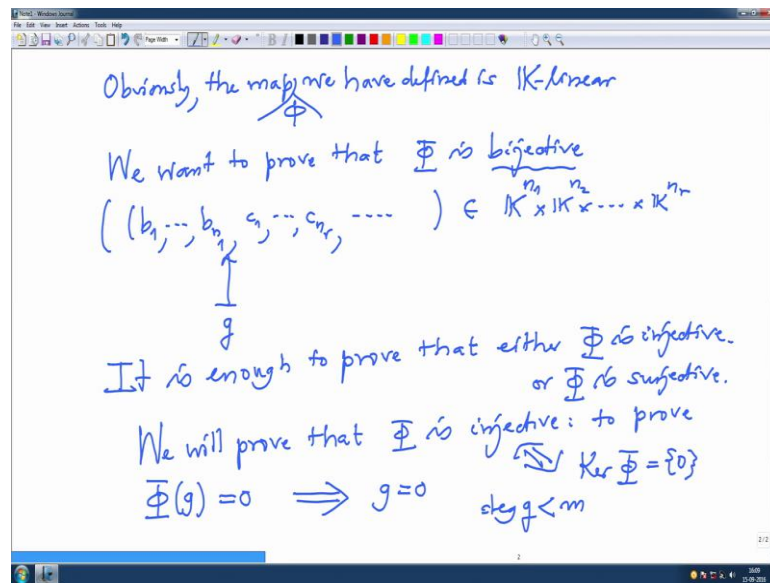 Note1 - Windows Journal
File Edit View Insert Actions Tools Help
Page Width
B I
Obviously, the map we have defined is IK-linear
Φ
We want to prove that Φ is bijective
((b₁, ..., b_{n₁}, c₁, ..., c_{n_r}, ---- ) ∈ IK^{n₁} × IK^{n₂} × ... × IK^{n_r}
g
It is enough to prove that either Φ is injective.
or Φ is surjective.
We will prove that Φ is injective: to prove
Ker Φ = {0}
Φ(g) = 0 ⟹ g = 0 deg g < m
2/2
2
16:09
15-09-2016